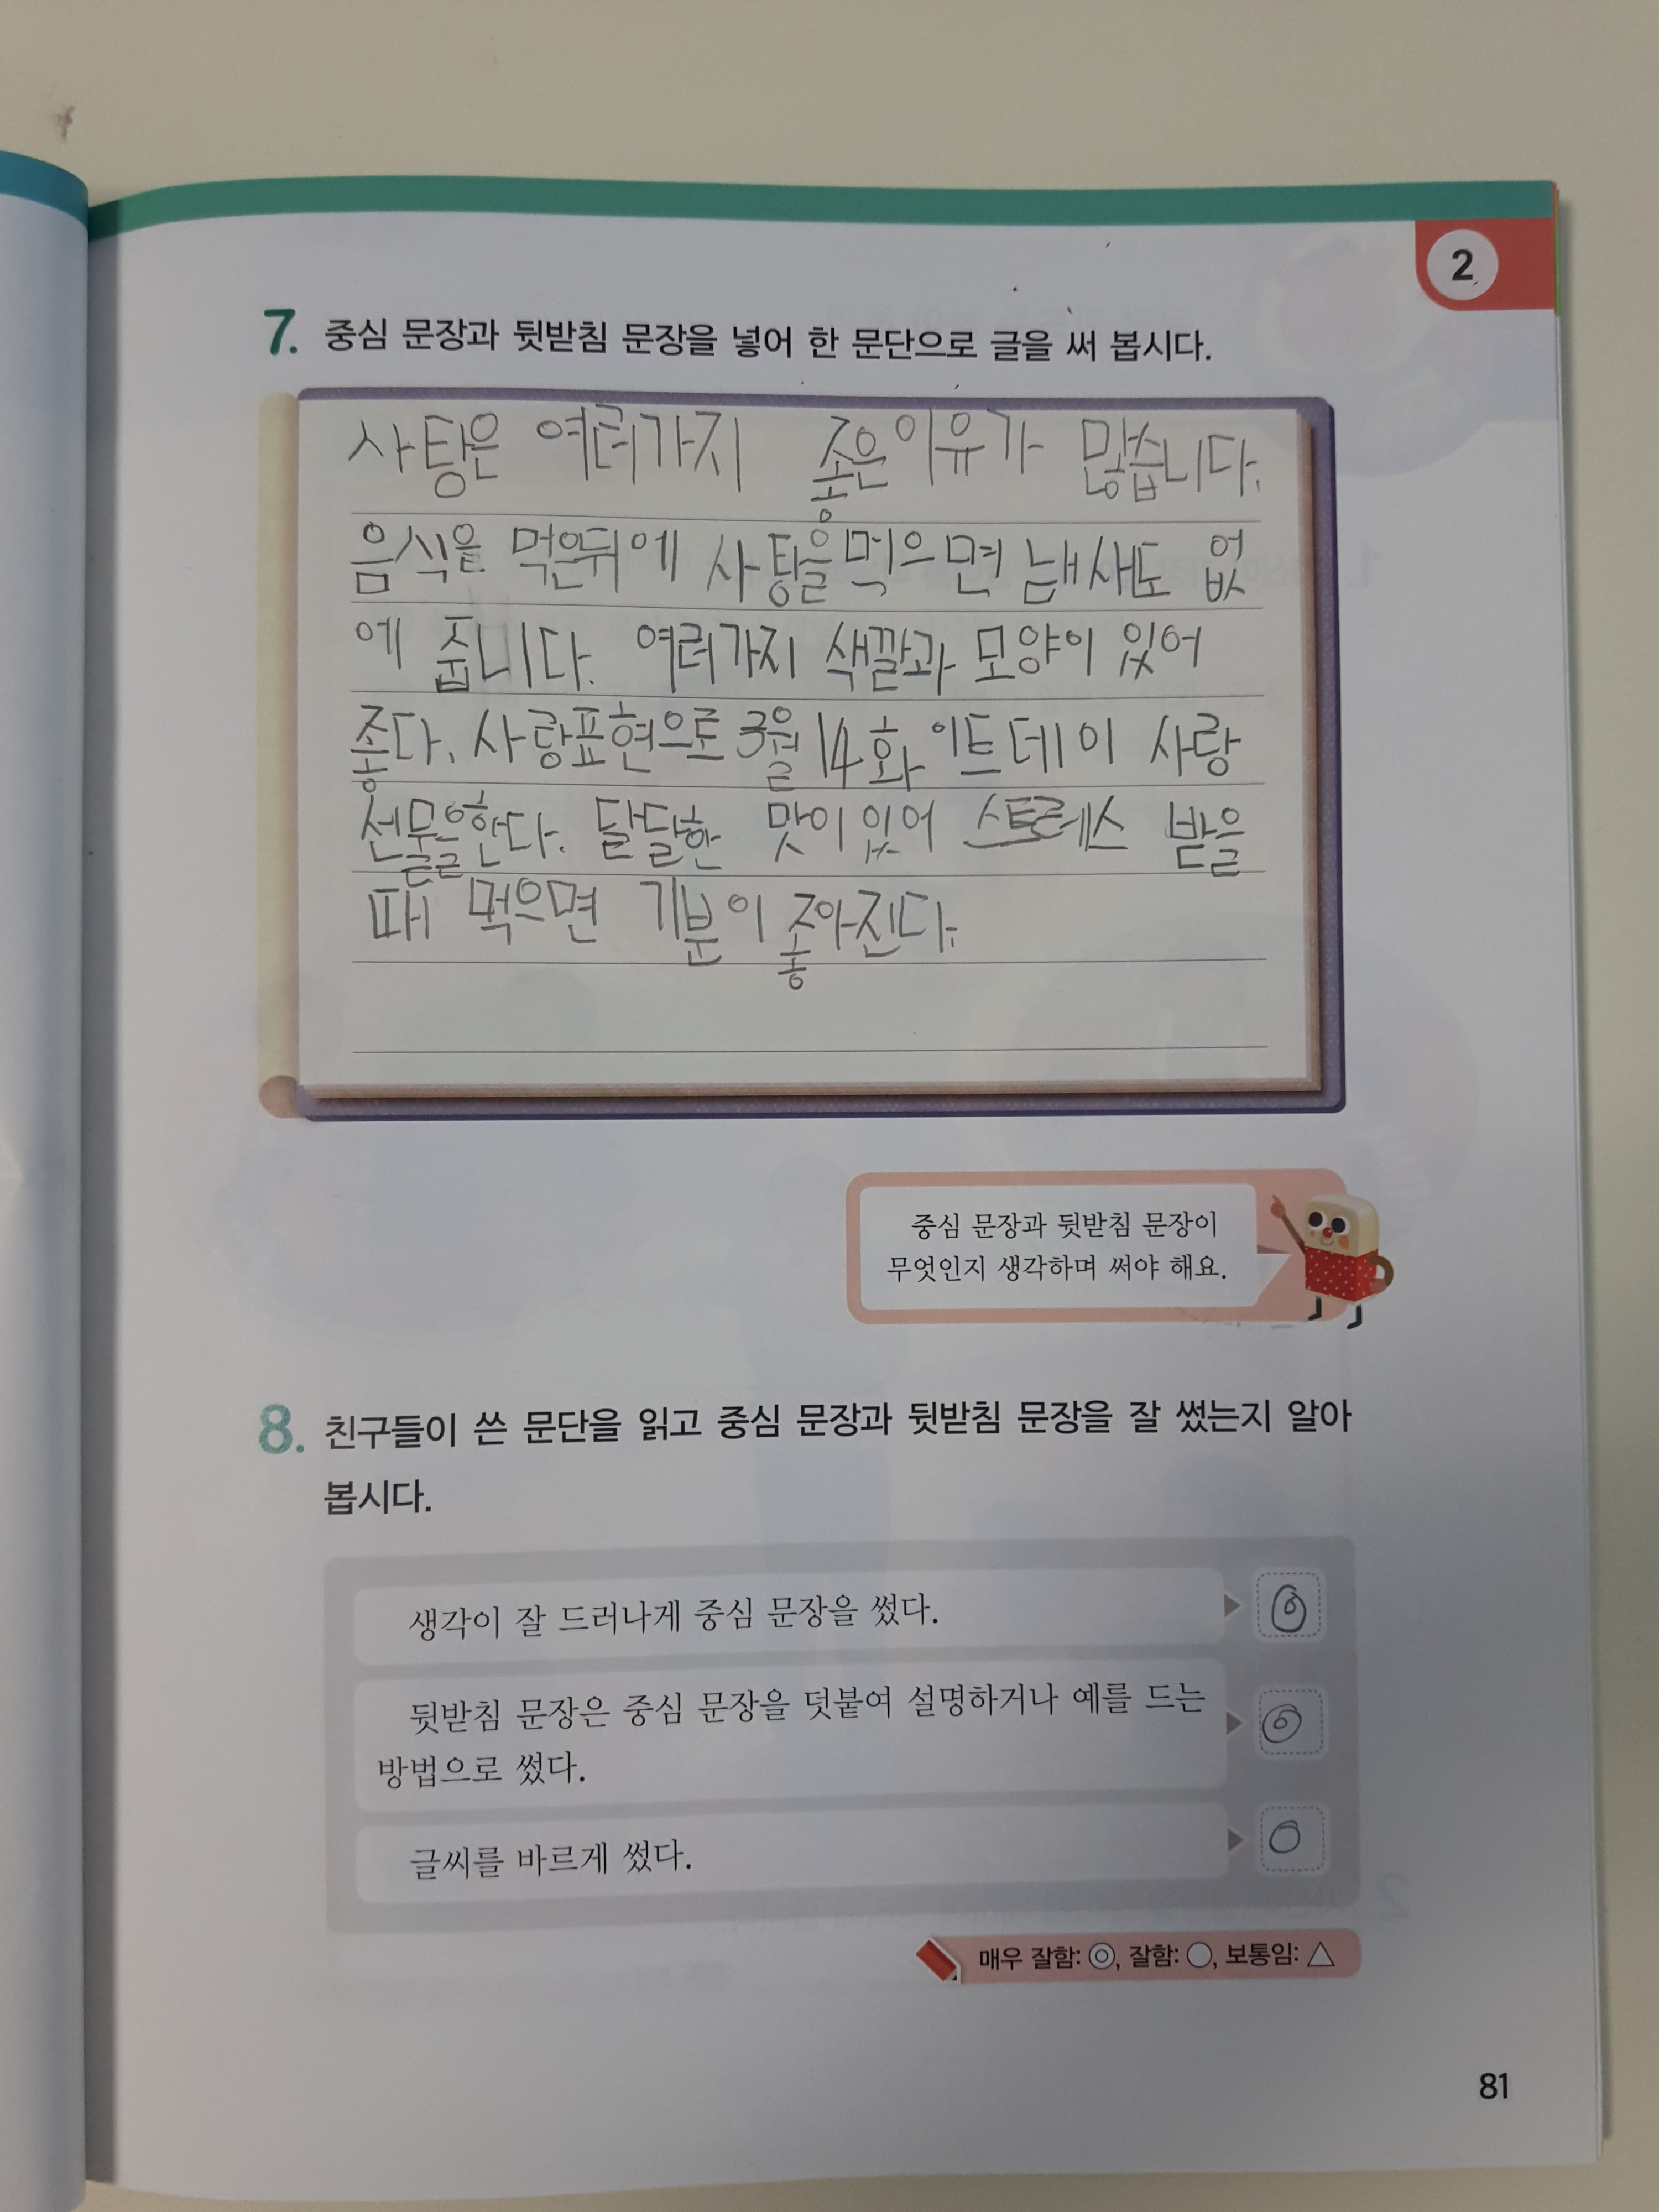 2
7. 중심 문장과 뒷받침 문장을 넣어 한 문단으로 글을 써 봅시다.
사탕은 여러가지 좋은이유가 많습니다.
음식을 먹은뒤에 사탕을먹으면 냄새도 없
에 줍니다. 여러가지 색깔과 모양이 있어
좋다. 사랑표현으로 3월 14화이트데이 사탕
선물을한다. 달달한 맛이있어 스트레스 받을
때 먹으면 기분이 좋아진다.
중심 문장과 뒷받침 문장이
무엇인지 생각하며 써야 해요.
8. 친구들이 쓴 문단을 읽고 중심 문장과 뒷받침 문장을 잘 썼는지 알아
봅시다.
생각이 잘 드러나게 중심 문장을 썼다.
뒷받침 문장은 중심 문장을 덧붙여 설명하거나 예를 드는
방법으로 썼다.
글씨를 바르게 썼다.
매우 잘함: ◎, 잘함: ○, 보통임: △
81